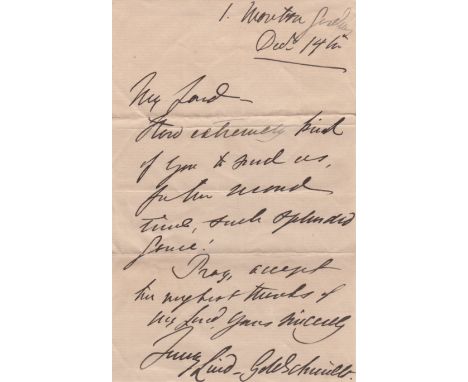 1. Moreton Gardens
Decbr 14th
My Lord –
How extremely kind
of you to send us,
for the second
time, such splendid
Game!
Pray, accept
the my best thanks of
My Lord Yours sincerely
Jenny Lind – Goldschmidt.